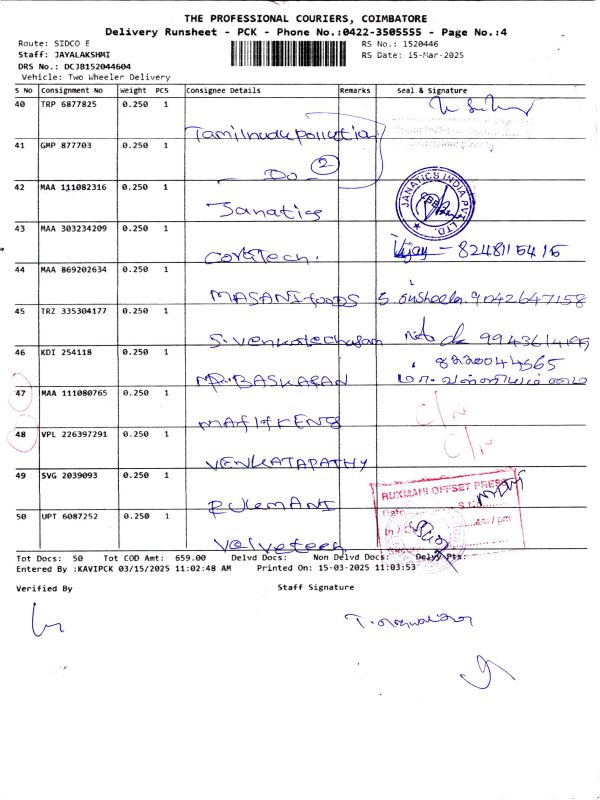 THE PROFESSIONAL COURIERS, COIMBATORE
Delivery Runsheet - PCK - Phone No.:0422-3505555 - Page No.:4
Route: SIDCO E
RS No.: 1520446
Staff: JAYALAKSHMI
RS Date: 15-Mar-2025
DRS No.: DCJB152044604
Vehicle: Two Wheeler Delivery
S No Consignment No Weight PCS Consignee Details Remarks Seal & Signature
40 TRP 6877825 0.250 1 Tamilnadu pollution
41 GMP 877703 0.250 1 - Do - 2
42 MAA 111082316 0.250 1 Janatics JANATICS INDIA PVT. LTD.
43 MAA 303234209 0.250 1 Vijay - 8248115415
44 MAA 869202634 0.250 1 MASANI foods S. Susheela. 9042647158
45 TRZ 335304177 0.250 1 S. Venkatachasan
46 KDI 254118 0.250 1 MR. BASKARAN 8220044565
47 MAA 111080765 0.250 1
48 VPL 226397291 0.250 1 VENKATAPATHY
49 SVG 2039093 0.250 1 RUKMANI RUKMANI OFFSET PRESS
50 UPT 6087252 0.250 1 Velveteen
Date
am / pm
Tot Docs: 50 Tot COD Amt: 659.00 Delvd Docs: Non Delvd Docs: Delvy Pts:
Entered By :KAVIPCK 03/15/2025 11:02:48 AM Printed On: 15-03-2025 11:03:53
Verified By Staff Signature